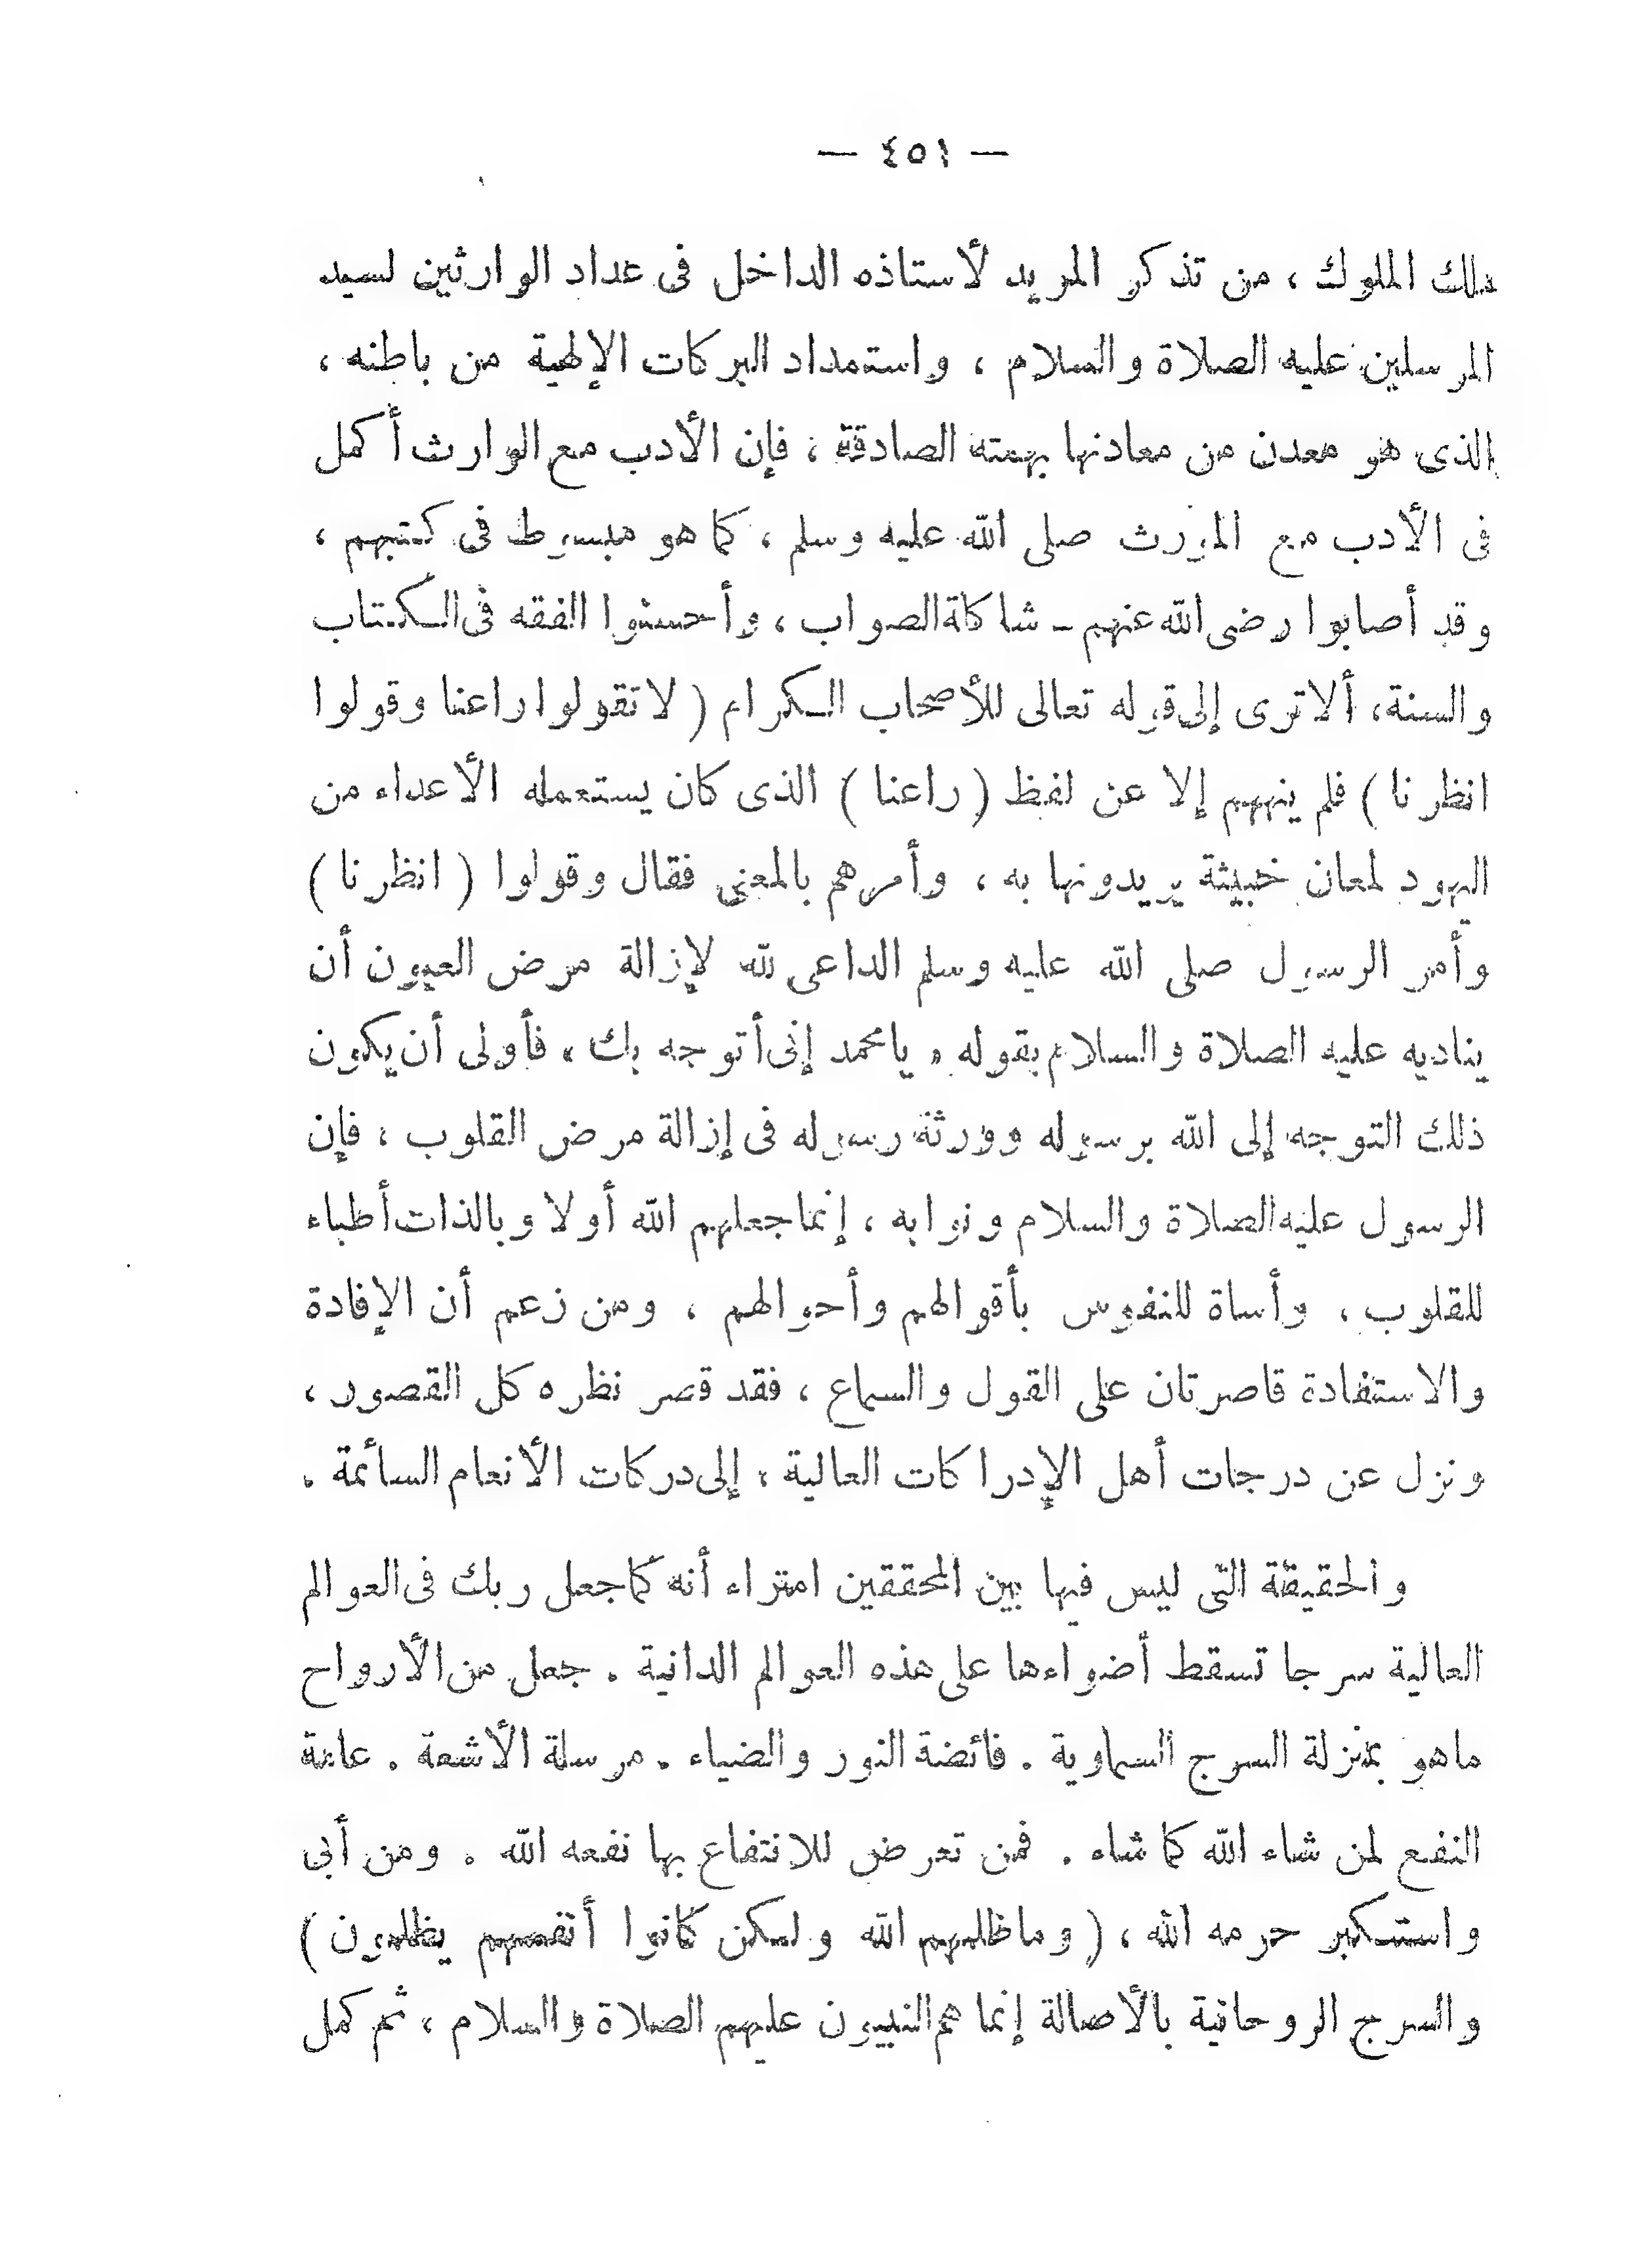 — ٤٥١ —
ملك الملوك ، من تذكر المريد لأستاذه الداخل فى عداد الوارثين لسيد
المرسلين عليه الصلاة والسلام ، واستمداد البركات الإلهية من باطنه ،
الذى هو معدن من معادنها بهمته الصادقة ، فإن الأدب مع الوارث أكمل
فى الأدب مع المورث صلى الله عليه وسلم ، كما هو مبسوط فى كتبهم ،
وقد أصابوا رضى الله عنهم ـ شاكاة الصواب ، وأحسنوا الفقه فى الكتاب
والسنة، ألا ترى إلى قوله تعالى للأصحاب الكرام ( لا تقولوا راعنا وقولوا
انظرنا ) فلم ينههم إلا عن لفظ ( راعنا ) الذى كان يستعمله الأعداء من
اليهود لمعان خبيثة يريدونها به ، وأمرهم بالمعنى فقال وقولوا ( انظرنا )
وأمر الرسول صلى الله عليه وسلم الداعى لله لإزالة مرض العيون أن
يناديه عليه الصلاة والسلام بقوله « يا محمد إنى أتوجه بك » فأولى أن يكون
ذلك التوجه إلى الله برسوله وورثة رسوله فى إزالة مرض القلوب ، فإن
الرسول عليه الصلاة والسلام ونوابه ، إنما جعلهم الله أولا وبالذات أطباء
للقلوب ، وأساة للنفوس بأقوالهم وأحوالهم ، ومن زعم أن الإفادة
والاستفادة قاصرتان على القول والسماع ، فقد قصر نظره كل القصور ،
ونزل عن درجات أهل الإدراكات العالية ، إلى دركات الأنعام السائمة .
والحقيقة التى ليس فيها بين المحققين امتراء أنه كما جعل ربك فى العوالم
العالية سرجا تسقط أضواءها على هذه العوالم الدانية . جعل من الأرواح
ماهو بمنزلة السرج السماوية . فائضة النور والضياء . مرسلة الأشعة . عامة
النفع لمن شاء الله كما شاء . فمن تعرض للانتفاع بها نفعه الله . ومن أبى
واستكبر حرمه الله ، ( وما ظلمهم الله ولكن كانوا أنفسهم يظلمون )
والسرج الروحانية بالأصالة إنما هم النبيون عليهم الصلاة والسلام ، ثم كمل